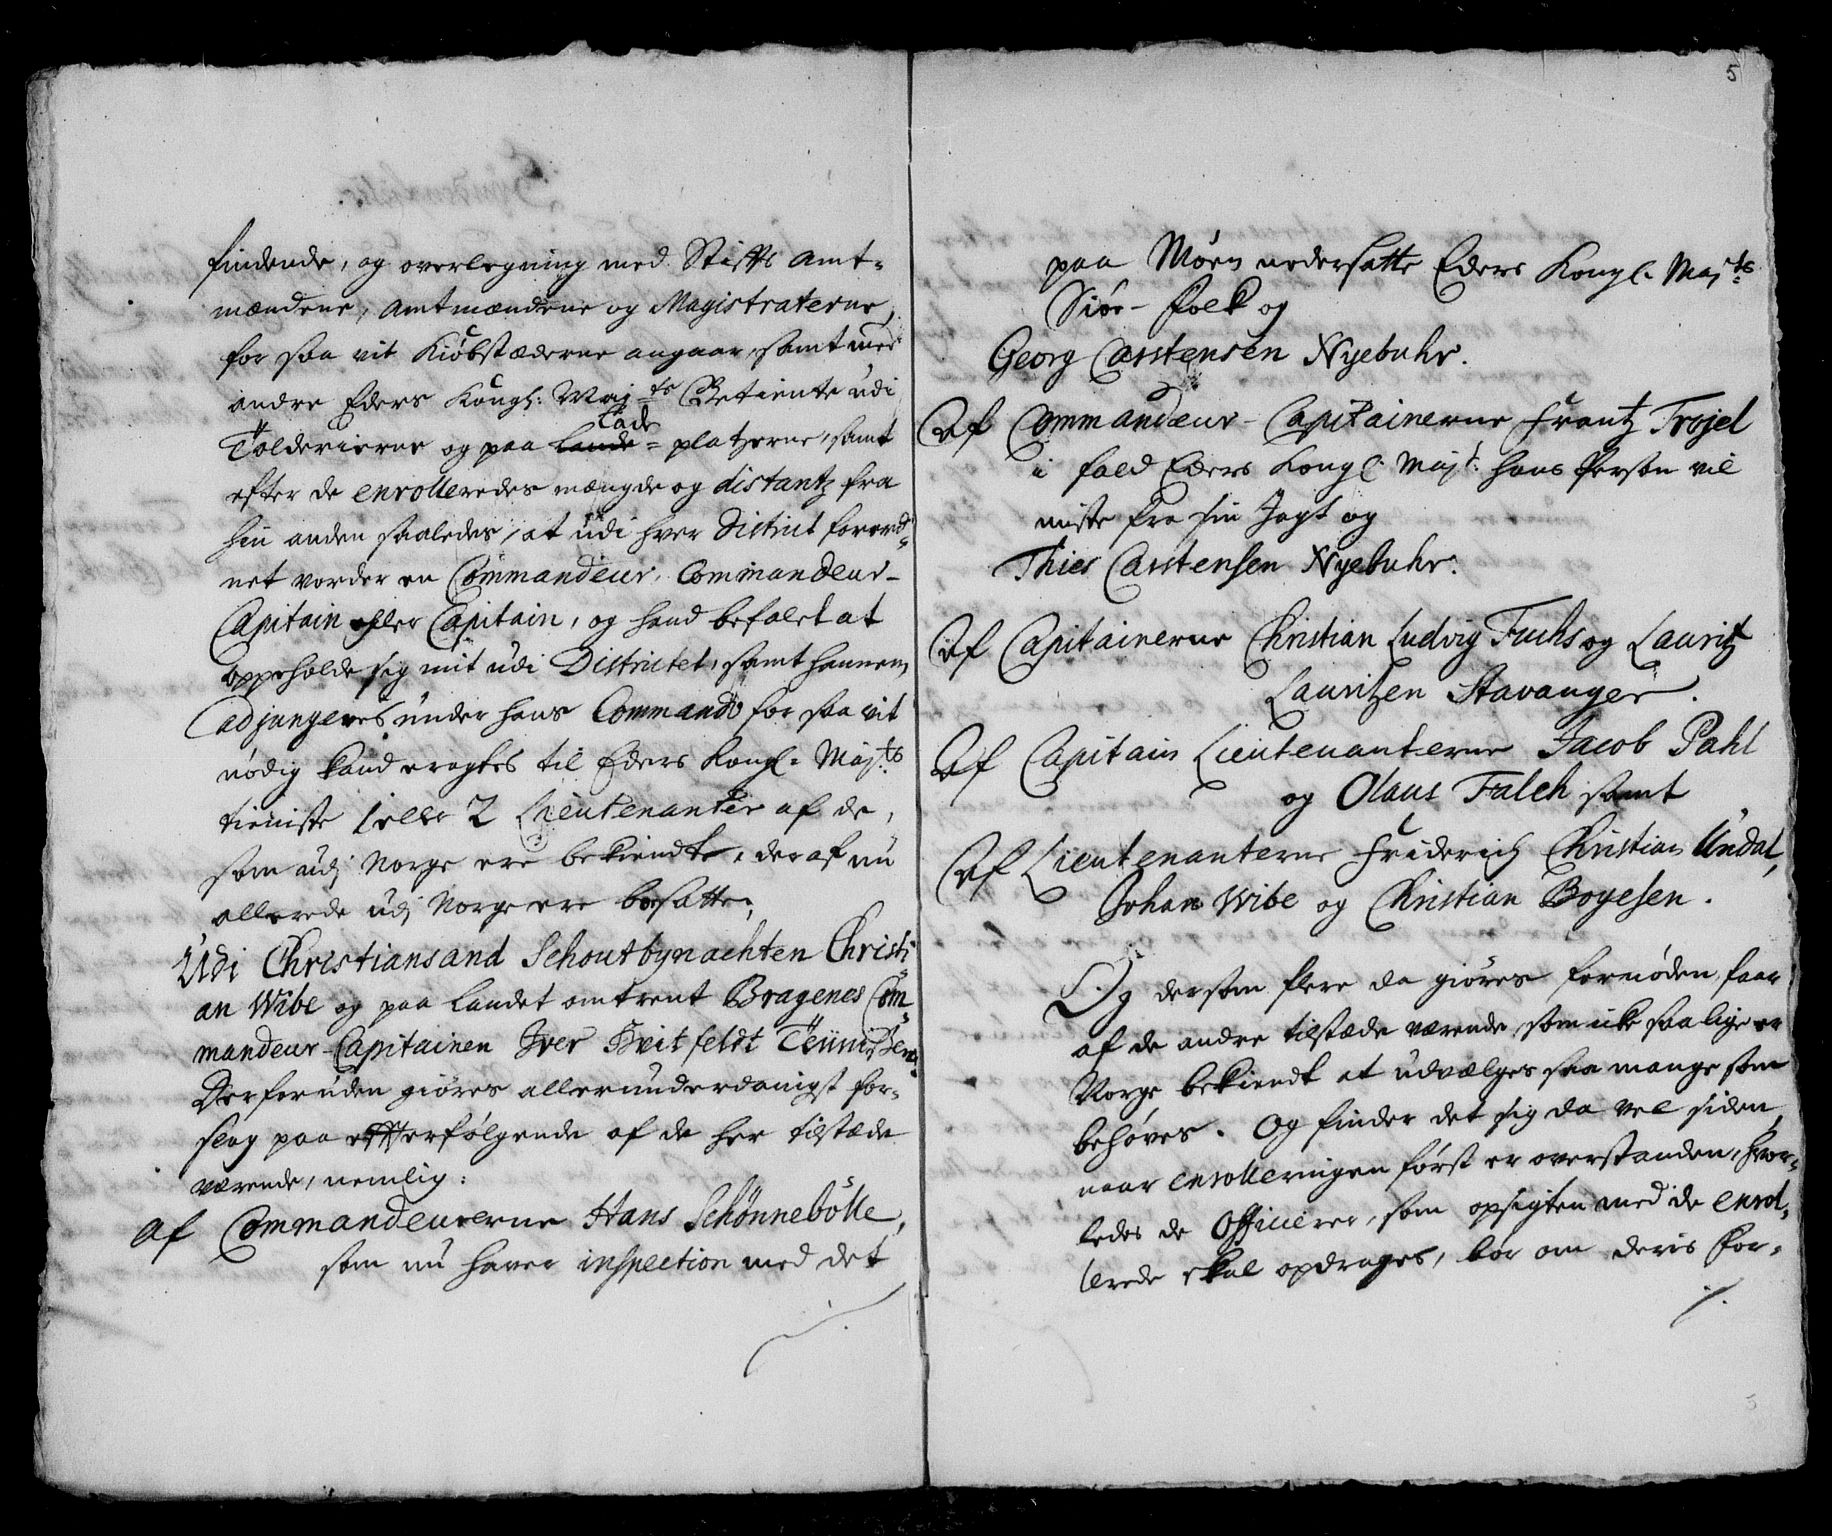 findende, og overlegning med Stiffts Amt-
mændene, Amtmændene og Magistraterne,
for saa vit Kiöbstæderne angaar, samt med
andre Eders Kongl: Maj:ts Betiente udi
Lade
Tolderierne og paa Lande-platzerne, samt
efter de enrolleredes mængde og distantz fra
hin anden saaledes, at udi hver District forord-
net vorder en Commandeur, Commandeur-
Capitain eller Capitain, og hand befalet at
oppeholde sig mit udi Districtet, samt hannem
adjungeres under hans Commando for saa vit
nödig kand eragtes til Eders Kongl: Maj:ts
tieniste 1 eller 2 Lieutenanter af de,
som udj Norge ere bekiendte, deraf nu
allerede udj Norge ere besatte,
Udi Christiansand Schoutbynachten Christi
an Wibe og paa Landet omtrent Bragenes Com-
mandeur-Capitainen Iver Hvitfeldt Teünißen,
Derforuden giöres allerunderdanigst for-
slag paa effterfölgende af de her tilstæde
værende, nemlig:
Af Commandeurerne Hans Schönnebölle,
som nu haver inspection med det
5
paa Möen nedersatte Eders Kongl. Maj:ts
Siöe-folk og
Georg Carstensen Nyebuhr.
Af Commandeur-Capitainerne Frantz Trojel
i fald Eders Kongl. Majt: hans Person vil
miste fra sin Jagt og
Thies Carstensen Nyebuhr.
Af Capitainerne Christian Ludvig Fuchs og Lauritz
Lauritzen Stavanger.
Af Capitain Lieutenanterne Jacob Pahl
og Olaus Falch samt
Af Lieutenanterne Friderich Christian Undal,
Johan Wibe og Christian Boyesen.
Og dersom flere da giöres fornöden, faar
af de andre tilstæde værende, som icke saa lige er
Norge bekiendt at udvælges saa mange som
behöves. Og finder det sig da vel siden,
naar enrolleringen först er overstanden, hvor-
ledes de Officerer, som opsigten med de enrol-
lerede skal opdrages, bör om deris for-
./.